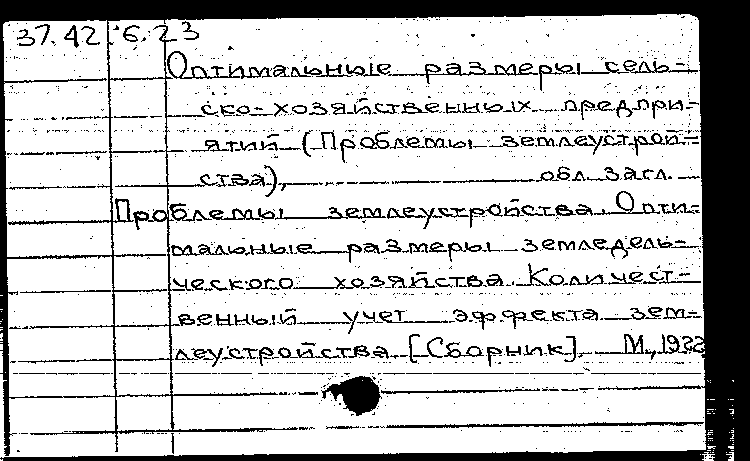 37.42.6.23
Оптимальные размеры сель-
ско-хозяйственных предпри-
ятий (Проблемы землеустрой-
ства), обл. загл.
Проблемы землеустройства. Опти-
мальные размеры земледель-
ческого хозяйства. Количест-
венный учет эффекта зем-
леустройства [Сборник]. М., 1922